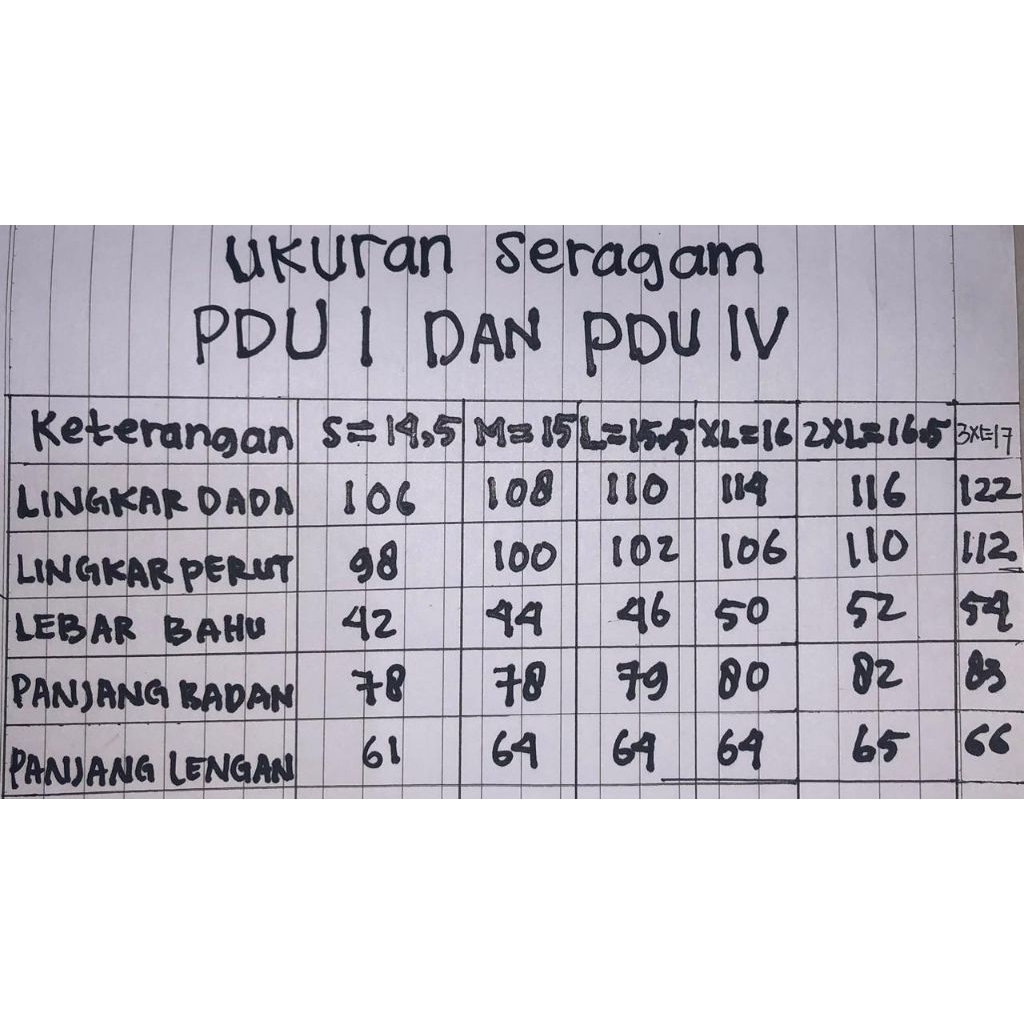 ukuran seragam
PDU I DAN PDU IV
Keterangan S=14,5 M=15 L=15.5 XL=16 2XL=16.5 3XL=17
LINGKAR DADA 106 108 110 114 116 122
LINGKAR PERUT 98 100 102 106 110 112
LEBAR BAHU 42 44 46 50 52 54
PANJANG BADAN 78 78 79 80 82 83
PANJANG LENGAN 61 64 64 64 65 66